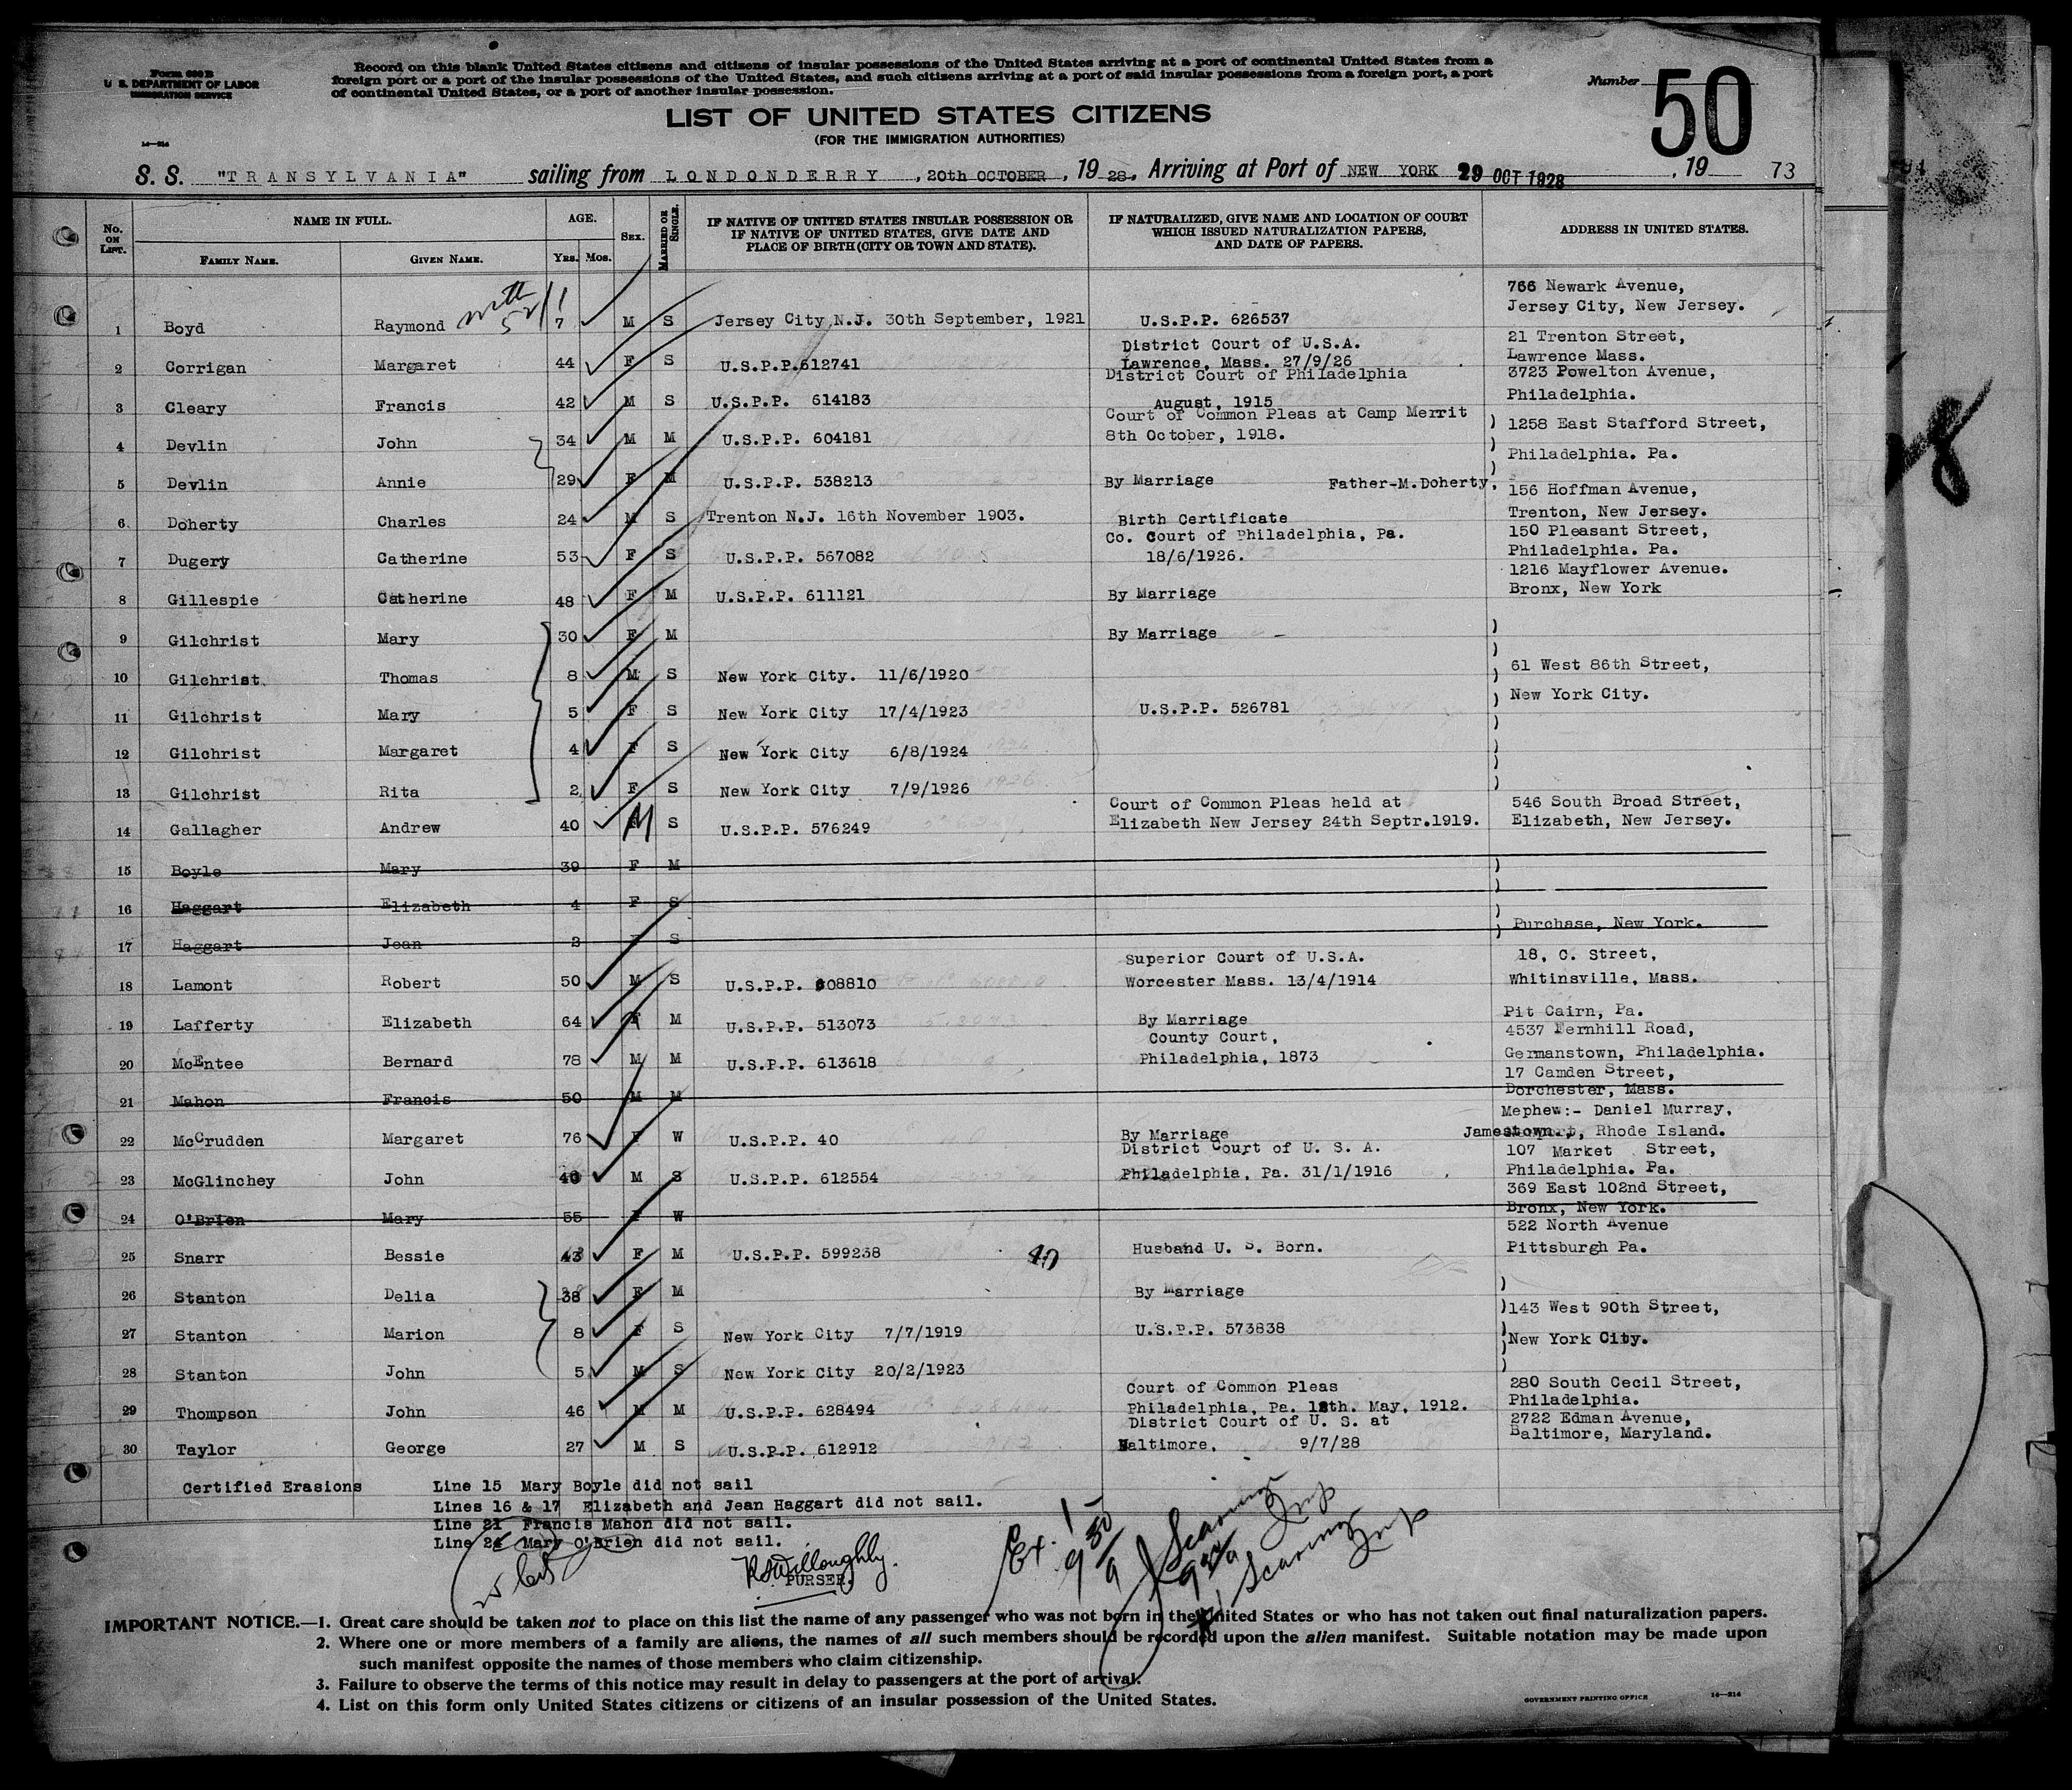 Form 630 B
U. S. DEPARTMENT OF LABOR
IMMIGRATION SERVICE
Record on this blank United States citizens and citizens of insular possessions of the United States arriving at a port of continental United States from a
foreign port or a port of the insular possessions of the United States, and such citizens arriving at a port of said insular possessions from a foreign port, a port
of continental United States, or a port of another insular possession.
Number 50
LIST OF UNITED STATES CITIZENS
(FOR THE IMMIGRATION AUTHORITIES)
14—214
S. S. "TRANSYLVANIA" sailing from LONDONDERRY, 20th OCTOBER, 19 28, Arriving at Port of NEW YORK 29 OCT 1928, 19 73
No. ON LIST. NAME IN FULL. AGE. SEX. MARRIED OR SINGLE. IF NATIVE OF UNITED STATES INSULAR POSSESSION OR IF NATIVE OF UNITED STATES, GIVE DATE AND PLACE OF BIRTH (CITY OR TOWN AND STATE). IF NATURALIZED, GIVE NAME AND LOCATION OF COURT WHICH ISSUED NATURALIZATION PAPERS, AND DATE OF PAPERS. ADDRESS IN UNITED STATES.
FAMILY NAME. GIVEN NAME. YRS. MOS.
766 Newark Avenue,
Jersey City, New Jersey.
1 Boyd Raymond with 52/1 7 M S Jersey City N.J. 30th September, 1921 U.S.P.P. 626537
District Court of U.S.A. 21 Trenton Street,
2 Corrigan Margaret 44 F S U.S.P.P. 612741 Lawrence, Mass. 27/9/26 Lawrence Mass.
District Court of Philadelphia 3723 Powelton Avenue,
3 Cleary Francis 42 M S U.S.P.P. 614183 August, 1915 Philadelphia.
Court of Common Pleas at Camp Merrit
4 Devlin John 34 M M U.S.P.P. 604181 8th October, 1918. ) 1258 East Stafford Street,
) Philadelphia. Pa.
5 Devlin Annie 29 F M U.S.P.P. 538213 By Marriage Father-M.Doherty,
156 Hoffman Avenue,
6 Doherty Charles 24 M S Trenton N.J. 16th November 1903. Birth Certificate Trenton, New Jersey.
Co. Court of Philadelphia, Pa. 150 Pleasant Street,
7 Dugery Catherine 53 F S U.S.P.P. 567082 18/6/1926. Philadelphia. Pa.
1216 Mayflower Avenue.
8 Gillespie Catherine 48 F M U.S.P.P. 611121 By Marriage Bronx, New York
9 Gilchrist Mary 30 F M By Marriage )
10 Gilchrist Thomas 8 M S New York City. 11/6/1920 ) 61 West 86th Street,
) New York City.
11 Gilchrist Mary 5 F S New York City 17/4/1923 U.S.P.P. 526781 )
12 Gilchrist Margaret 4 F S New York City 6/8/1924 )
13 Gilchrist Rita 2 F S New York City 7/9/1926 )
Court of Common Pleas held at 546 South Broad Street,
14 Gallagher Andrew 40 M S U.S.P.P. 576249 Elizabeth New Jersey 24th Septr.1919. Elizabeth, New Jersey.
15 Boyle Mary 39 F M )
16 Haggart Elizabeth 4 F S )
Purchase, New York.
17 Haggart Jean 3 F S )
Superior Court of U.S.A. 18, C. Street,
18 Lamont Robert 50 M S U.S.P.P. 608810 Worcester Mass. 13/4/1914 Whitinsville, Mass.
19 Lafferty Elizabeth 64 F M U.S.P.P. 513073 By Marriage Pit Cairn, Pa.
County Court, 4537 Fernhill Road,
20 McEntee Bernard 78 M M U.S.P.P. 613618 Philadelphia, 1873 Germanstown, Philadelphia.
17 Camden Street,
21 Mahon Francis 50 M M Dorchester, Mass.
Mephew:- Daniel Murray,
22 McCrudden Margaret 76 F W U.S.P.P. 40 By Marriage Jamestown., Rhode Island.
District Court of U. S. A. 107 Market Street,
23 McGlinchey John 40 M S U.S.P.P. 612554 Philadelphia, Pa. 31/1/1916 Philadelphia. Pa.
369 East 102nd Street,
24 O'Brien Mary 55 F W Bronx, New York.
522 North Avenue
25 Snarr Bessie 43 F M U.S.P.P. 599238 40 Husband U. S. Born. Pittsburgh Pa.
26 Stanton Delia 38 F M By Marriage )
)143 West 90th Street,
27 Stanton Marion 8 F S New York City 7/7/1919 U.S.P.P. 573838 )New York City.
28 Stanton John 5 M S New York City 20/2/1923 )
Court of Common Pleas 280 South Cecil Street,
29 Thompson John 46 M M U.S.P.P. 628494 Philadelphia, Pa. 18th. May, 1912. Philadelphia.
District Court of U. S. at 2722 Edman Avenue,
30 Taylor George 27 M S U.S.P.P. 612912 Baltimore, 9/7/28 Baltimore, Maryland.
Certified Erasions Line 15 Mary Boyle did not sail
Lines 16 & 17 Elizabeth and Jean Haggart did not sail.
Line 21 Francis Mahon did not sail.
Line 24 Mary O'Brien did not sail.
R S Willoughly.
PURSER.
IMPORTANT NOTICE.—1. Great care should be taken not to place on this list the name of any passenger who was not born in the United States or who has not taken out final naturalization papers.
2. Where one or more members of a family are aliens, the names of all such members should be recorded upon the alien manifest. Suitable notation may be made upon
such manifest opposite the names of those members who claim citizenship.
3. Failure to observe the terms of this notice may result in delay to passengers at the port of arrival.
4. List on this form only United States citizens or citizens of an insular possession of the United States.
GOVERNMENT PRINTING OFFICE 14—214